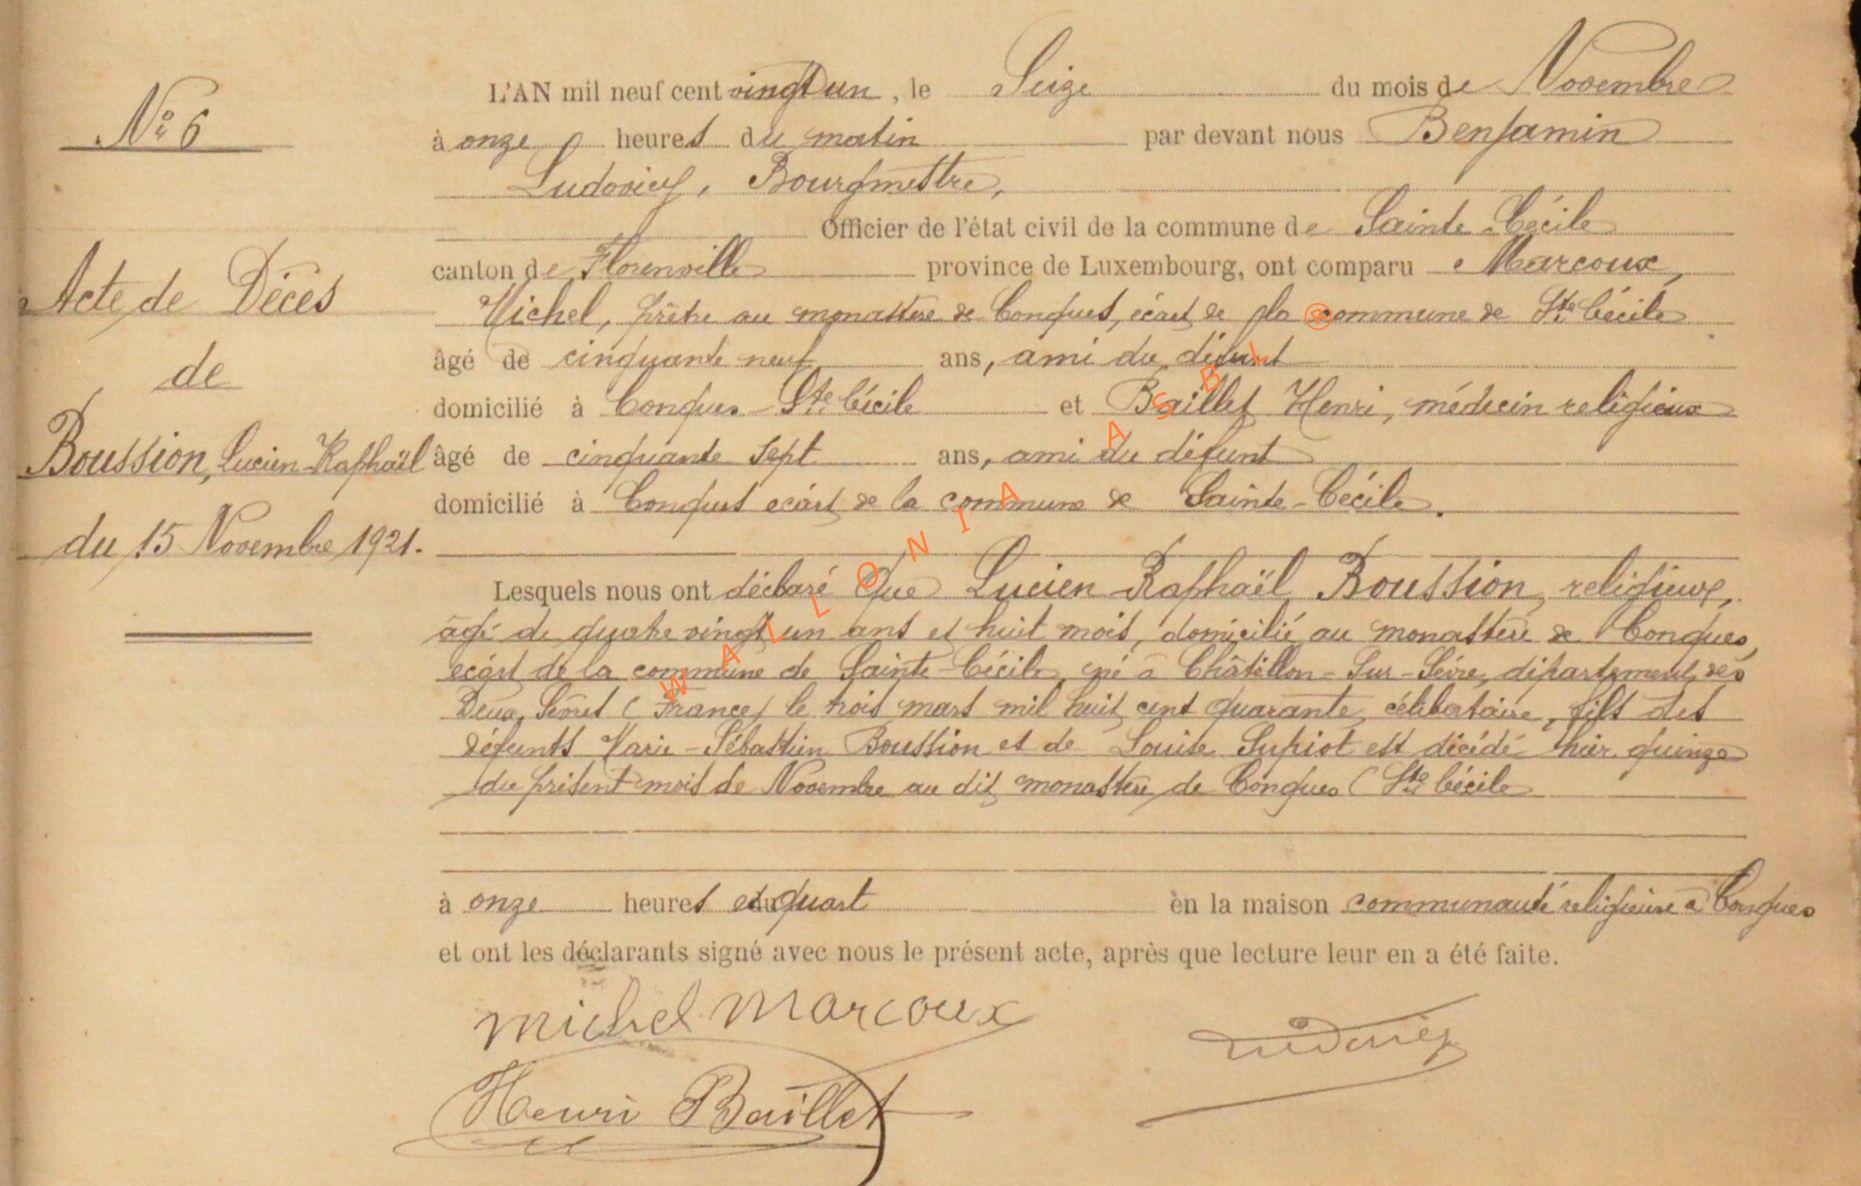 N° 6
Acte de Décès
de
Boussion, Lucien Raphaël
du 15 Novembre 1921.
L'AN mil neuf cent vingt un, le Seize du mois de Novembre
à onze heures du matin par devant nous Benjamin
Ludovicy, Bourgmestre,
Officier de l'état civil de la commune de Sainte-Cécile
canton de Florenville province de Luxembourg, ont comparu Marcoux,
Michel, prêtre au monastère de Conques, écart de la commune de Ste Cécile
âgé de cinquante neuf ans, ami du défunt
domicilié à Conques Ste Cécile et Baillet Henri, médecin religieux
âgé de cinquante sept ans, ami du défunt
domicilié à Conques écart de la commune de Sainte-Cécile.
Lesquels nous ont déclaré que Lucien Raphaël Boussion, religieux,
âgé de quatre vingt un ans et huit mois, domicilié au monastère de Conques,
écart de la commune de Sainte-Cécile, né à Châtillon-Sur-Sèvre, département des
Deux Sèvres (France) le trois mars mil huit cent quarante, célibataire, fils des
défunts Marie-Sébastien Boussion et de Louise Supiot est décédé hier quinze
du présent mois de Novembre au dit monastère de Conques (Ste Cécile
à onze heures et quart en la maison communauté religieuse à Conques
et ont les déclarants signé avec nous le présent acte, après que lecture leur en a été faite.
Michel Marcoux
Ludovicy
Henri Baillet
WALLONIA ASBL ®